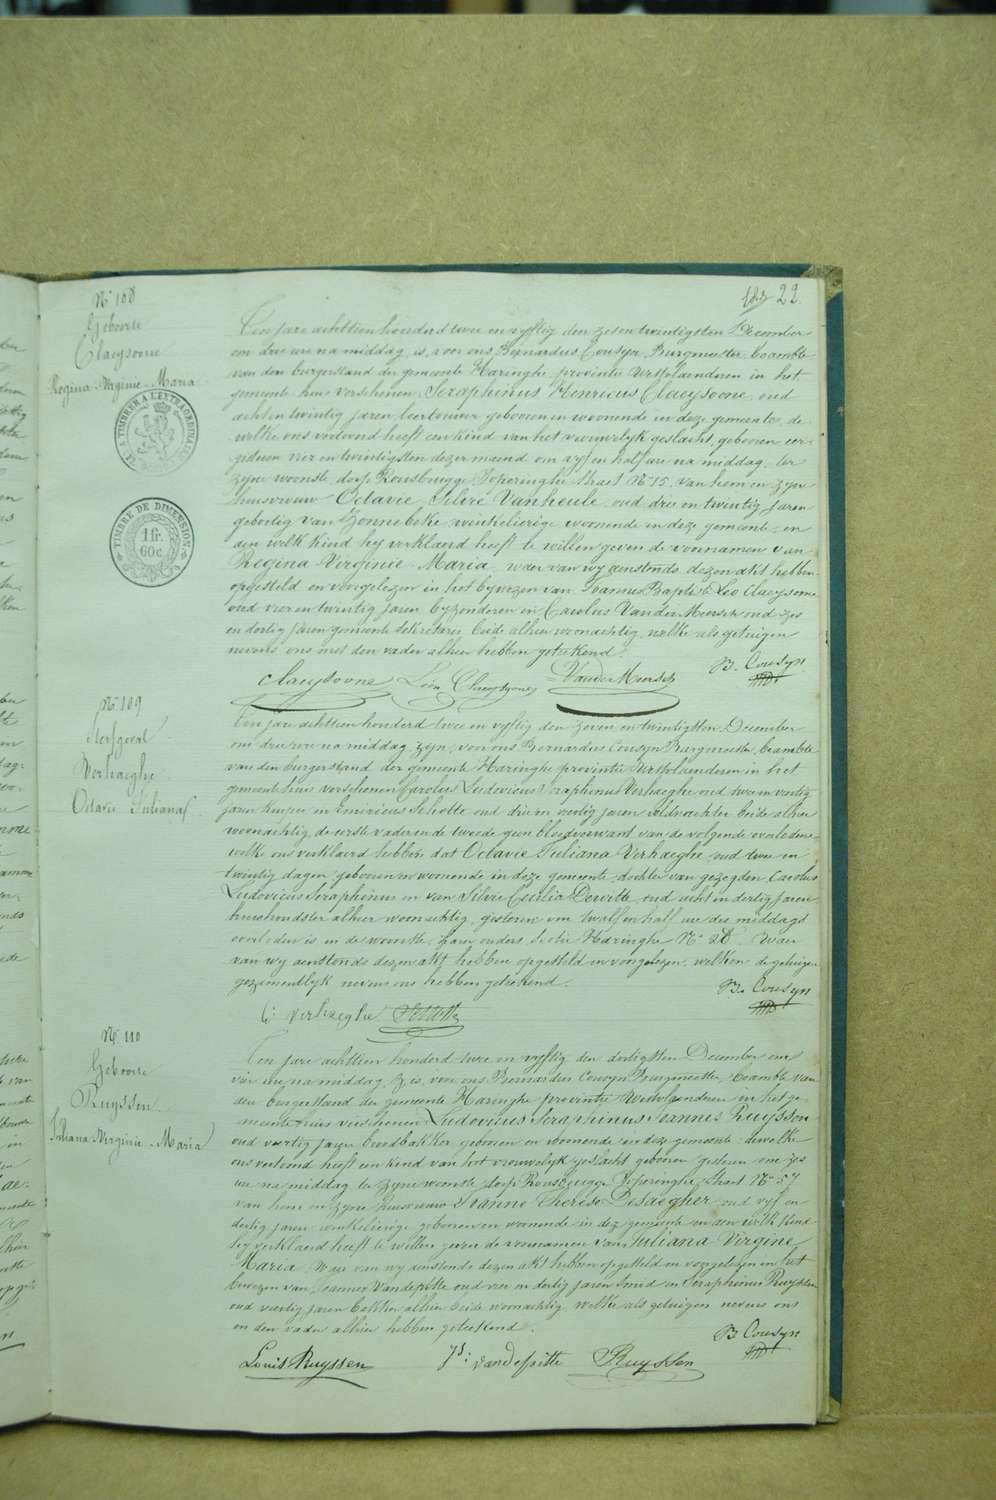 22.
N° 108
Geboorte
Claeysoone
Regina Virginie Maria
A TIMBRER A L'EXTRAORDINAIRE
TIMBRE DE DIMENSION
1 fr.
60 c.
Ten jare achttien honderd twee en vyftig den zesentwintigsten December
om drie ure na middag, is, voor ons Bernardus Cousyn, Burgmeester, beambte
van den burgerstand der gemeente Haringhe provintie Westvlaenderen in het
gemeente huis verschenen Seraphinus Henricus Claeysoone, oud
acht en twintig jaren, geboren en woonende in deze gemeente, de
welke ons vertoond heeft een kind van het vrouwelyk geslacht, geboren eer-
gisteren vier en twintigsten dezer maend om vyf en half ure na middag, ter
zyne woonste, dorp Rousbrugge Poperinghe straet N° 15, van hem en zyne
huisvrouw Octavie Vanheule, oud drie en twintig jaren
geboortig van Zonnebeke winkelierige woonende in deze gemeente, en
aen welk kind hy verklaerd heeft te willen geven de voornamen van
Regina Virginie Maria, waer van wy aenstonds dezen akt hebben
opgesteld en voorgelezen in het bywezen van Joannes Baptist Leo Claeysoone
oud vier en twintig jaren, byzonderen en Carolus Vander Meersch oud zes
en dertig jaren gemeente sekretaris beide alhier woonachtig, welke als getuigen
nevens ons met den vader alhier hebben geteekend.
B. Cousyn
Claeysoone Léon Claeysoone VanderMeersch
N° 109
Sterfgeval
Verhaeghe
Octavie Juliana
Ten jare achttien honderd twee en vyftig den zeven en twintigsten December
om drie ure na middag, zyn, voor ons Bernardus Cousyn Burgmeester, beambte
van den burgerstand der gemeente Haringhe provintie Westvlaenderen in het
gemeente huis verschenen Carolus Ludovicus Seraphinus Verhaeghe oud twee en veertig
jaren en oud drie en veertig jaren veldwachter beide alhier
woonachtig, de eerste vader en de tweede geen bloedverwant van de volgende overledene
welke ons verklaerd hebben dat Octavie Juliana Verhaeghe, oud twee en
twintig dagen, geboren en woonende in deze gemeente, dochter van gezegden Carolus
Ludovicus Seraphinus en van Silvie Cecilia Dewitte oud acht en dertig jaren
huishoudster alhier woonachtig, gisteren om twelf en half ure des middags
overleden is in de woonste harer ouders sectie Haringhe N° 28. Waer
van wy aenstonds dezen akt hebben opgesteld en voorgelezen, welken de getuigen
gezamentlyk nevens ons hebben geteekend.
B. Cousyn
C: verhaeghe
N° 110
Geboorte
Ruyssen
Juliana Virginie Maria
Ten jare achttien honderd twee en vyftig den dertigsten December om
vier ure na middag, is, voor ons Bernardus Cousyn Burgmeester, beambte van
den burgerstand der gemeente Haringhe provintie Westvlaenderen in het ge-
meente huis verschenen Ludovicus Seraphinus Joannes Ruyssen
oud veertig jaren broodbakker geboren en woonende in deze gemeente dewelke
ons vertoond heeft een kind van het vrouwelyk geslacht geboren gisteren om zes
ure na middag ter zyne woonste dorp Rousbrugge Poperinghe straet N° 57
van hem en zyne huisvrouw Joanne Therese Desaegher oud vyf en
dertig jaren winkelierige geboren en woonende in deze gemeente en aen welk kind
hy verklaerd heeft te willen geven de voornamen van Juliana Virginie
Maria. Waer van wy aenstonds dezen akt hebben opgesteld en voorgelezen in het
bywezen van Joannes Vandepitte oud vier en dertig jaren smid en Seraphinus Ruyssen
oud veertig jaren bakker alhier beide woonachtig welke als getuigen nevens ons
en den vader alhier hebben geteekend.
B Cousyn
Louis Ruyssen Js: vandepitte Ruyssen